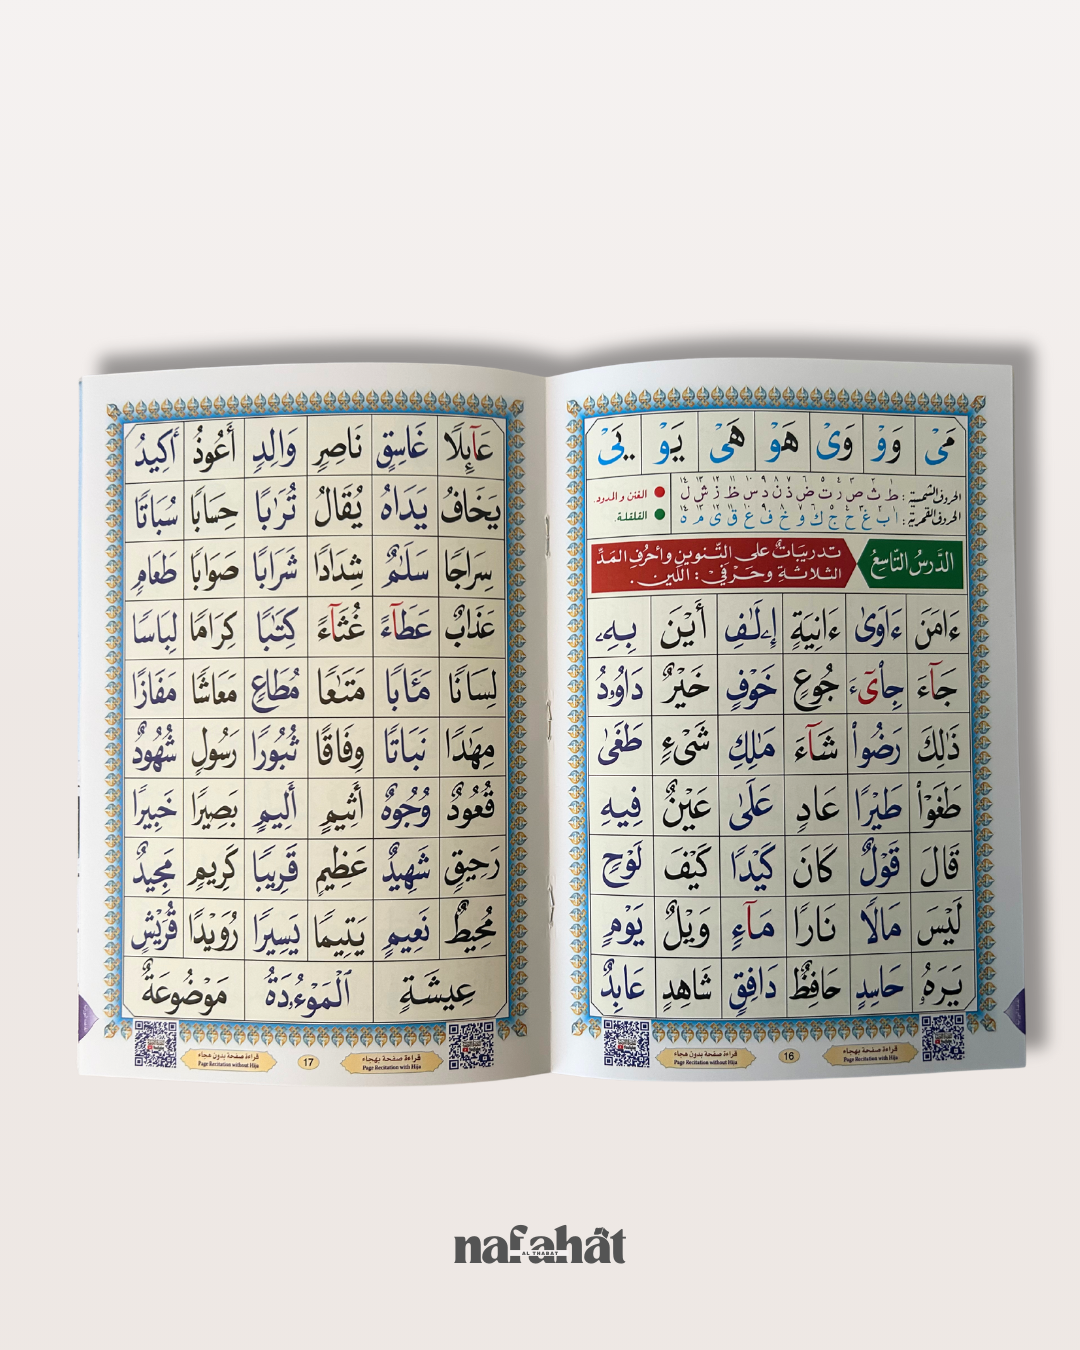 مَىْ وَوْ وَىْ هَوْ هَىْ يَوْ يَىْ
الحروف الشمسية : ط ث ص ر ت ض ذ ن د س ظ ز ش ل
١ ٢ ٣ ٤ ٥ ٦ ٧ ٨ ٩ ١٠ ١١ ١٢ ١٣ ١٤
الغنن و المدود.
الحروف القمرية : ا ب غ ح ج ك و خ ف ع ق ى م ه
١ ٢ ٣ ٤ ٥ ٦ ٧ ٨ ٩ ١٠ ١١ ١٢ ١٣ ١٤
القلقلة.
الدَّرسُ التَّاسِعُ
تدريباتٌ على التَّنوينِ وأحرُفِ المَدِّ
الثلاثةِ وحَرفَيْ : اللِّين .
ءَامَنَ ءَاوَىٰ ءَانِيَةٍ إِۦلَٰفِ أَيْنَ بِهِۦ
جَآءَ جِا۟ىٓءَ جُوعٍ خَوْفٍ خَيْرٌ دَاوُۥدُ
ذَٰلِكَ رَضُوا۟ شَآءَ مَٰلِكِ شَىْءٍ طَغَىٰ
طَغَوْا۟ طَيْرًا عَادٍ عَلَىٰ عَيْنٌ فِيهِ
قَالَ قَوْلٌ كَانَ كَيْدًا كَيْفَ لَوْحٍ
لَيْسَ مَالًا نَارًا مَآءٍ وَيْلٌ يَوْمٍ
يَرَهُۥ حَاسِدٍ حَافِظٌ دَافِقٍ شَاهِدٍ عَابِدٌ
قراءة صفحة بهجاء
Page Recitation with Hija
16
قراءة صفحة بدون هجاء
Page Recitation without Hija
عَآئِلًا غَاسِقٍ نَاصِرٍ وَالِدٍ أَعُوذُ أَكِيدُ
يَخَافُ يَدَاهُ يُقَالُ تُرَٰبًا حِسَابًا سُبَاتًا
سِرَاجًا سَلَٰمٌ شِدَادًا شَرَابًا صَوَابًا طَعَامٍ
عَذَابٌ عَطَآءً غُثَآءً كِتَٰبًا كِرَامًا لِبَاسًا
لِسَانًا مَـَٔابًا مَتَٰعًا مُطَاعٍ مَعَاشًا مَفَازًا
مِهَٰدًا نَبَاتًا وِفَاقًا ثُبُورًا رَسُولٍ شُهُودٌ
قُعُودٌ وُجُوهٌ أَثِيمٍ أَلِيمٍ بَصِيرًا خَبِيرًا
رَحِيقٍ شَهِيدٌ عَظِيمٍ قَرِيبًا كَرِيمٍ مَجِيدٌ
مُحِيطٌ نَعِيمٍ يَتِيمًا يَسِيرًا رُوَيْدًا قُرَيْشٍ
عِيشَةٍ ٱلْمَوْءُۥدَةُ مَوْضُوعَةٌ
قراءة صفحة بهجاء
Page Recitation with Hija
17
قراءة صفحة بدون هجاء
Page Recitation without Hija
nafahât
AL THABAT